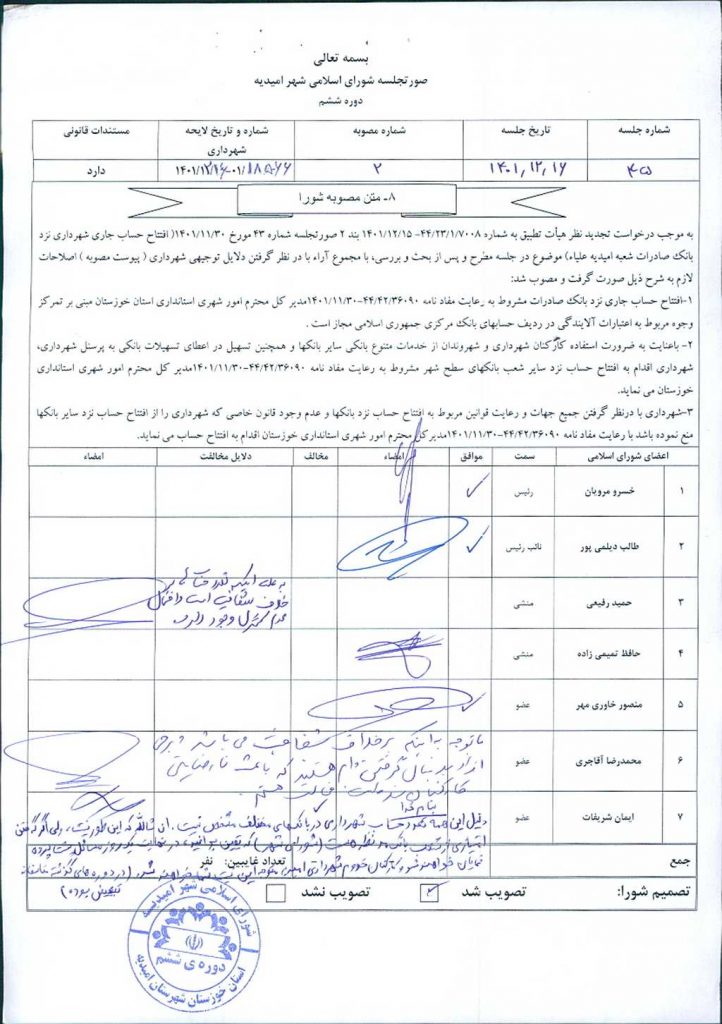 بسمه تعالی
صورتجلسه شورای اسلامی شهر امیدیه
دوره ششم
شماره جلسه تاریخ جلسه شماره مصوبه شماره و تاریخ لایحه شهرداری مستندات قانونی
۴۵ ۱۴۰۱,۱۲,۱۶ ۲ دارد
۸ـ متن مصوبه شورا
به موجب درخواست تجدید نظر هیأت تطبیق به شماره ۴۴/۲۳/۱/۷۰۰۸- ۱۴۰۱/۱۲/۱۵ بند ۲ صورتجلسه شماره ۴۳ مورخ ۱۴۰۱/۱۱/۳۰( افتتاح حساب جاری شهرداری نزد
بانک صادرات شعبه امیدیه علیاء) موضوع در جلسه مطرح و پس از بحث و بررسی، با مجموع آراء با در نظر گرفتن دلایل توجیهی شهرداری ( پیوست مصوبه ) اصلاحات
لازم به شرح ذیل صورت گرفت و مصوب شد:
۱-افتتاح حساب جاری نزد بانک صادرات مشروط به رعایت مفاد نامه ۴۴/۴۲/۳۶۰۹۰-۱۴۰۱/۱۱/۳۰مدیر کل محترم امور شهری استانداری استان خوزستان مبنی بر تمرکز
وجوه مربوط به اعتبارات آلایندگی در ردیف حسابهای بانک مرکزی جمهوری اسلامی مجاز است .
۲- باعنایت به ضرورت استفاده کارکنان شهرداری و شهروندان از خدمات متنوع بانکی سایر بانکها و همچنین تسهیل در اعطای تسهیلات بانکی به پرسنل شهرداری،
شهرداری اقدام به افتتاح حساب نزد سایر شعب بانکهای سطح شهر مشروط به رعایت مفاد نامه ۴۴/۴۲/۳۶۰۹۰-۱۴۰۱/۱۱/۳۰مدیر کل محترم امور شهری استانداری
خوزستان می نماید.
۳-شهرداری با درنظر گرفتن جمیع جهات و رعایت قوانین مربوط به افتتاح حساب نزد بانکها و عدم وجود قانون خاصی که شهرداری را از افتتاح حساب نزد سایر بانکها
منع نموده باشد با رعایت مفاد نامه ۴۴/۴۲/۳۶۰۹۰-۱۴۰۱/۱۱/۳۰مدیرکل محترم امور شهری استانداری خوزستان اقدام به افتتاح حساب می نماید.
اعضای شورای اسلامی سمت موافق امضاء مخالف دلایل مخالفت امضاء
۱ خسرو مرویان رئیس ✓
۲ طالب دیلمی پور نائب رئیس ✓
۳ حمید رفیعی منشی
به علت اینکه تعدد حسابها بر
خلاف شفافیت است و احتمال
عدم کنترل وجود دارد
۴ حافظ تمیمی زاده منشی
۵ منصور خاوری مهر عضو ✓
۶ محمدرضا آقاجری عضو
با توجه به اینکه برخلاف شفافیت می باشد و برخی
افراد به دنبال گرفتن وام هستند که باعث نارضایتی
۷ ایمان شریفات عضو ✓
بنام خدا
دلیل این همه تعدد حساب شهرداری در بانکهای مختلف مشخص نیست
جمع تعداد غایبین: نفر
تصمیم شورا: تصویب شد ✓ تصویب نشد
شورای اسلامی شهر امیدیه
دوره ی ششم
استان خوزستان شهرستان امیدیه